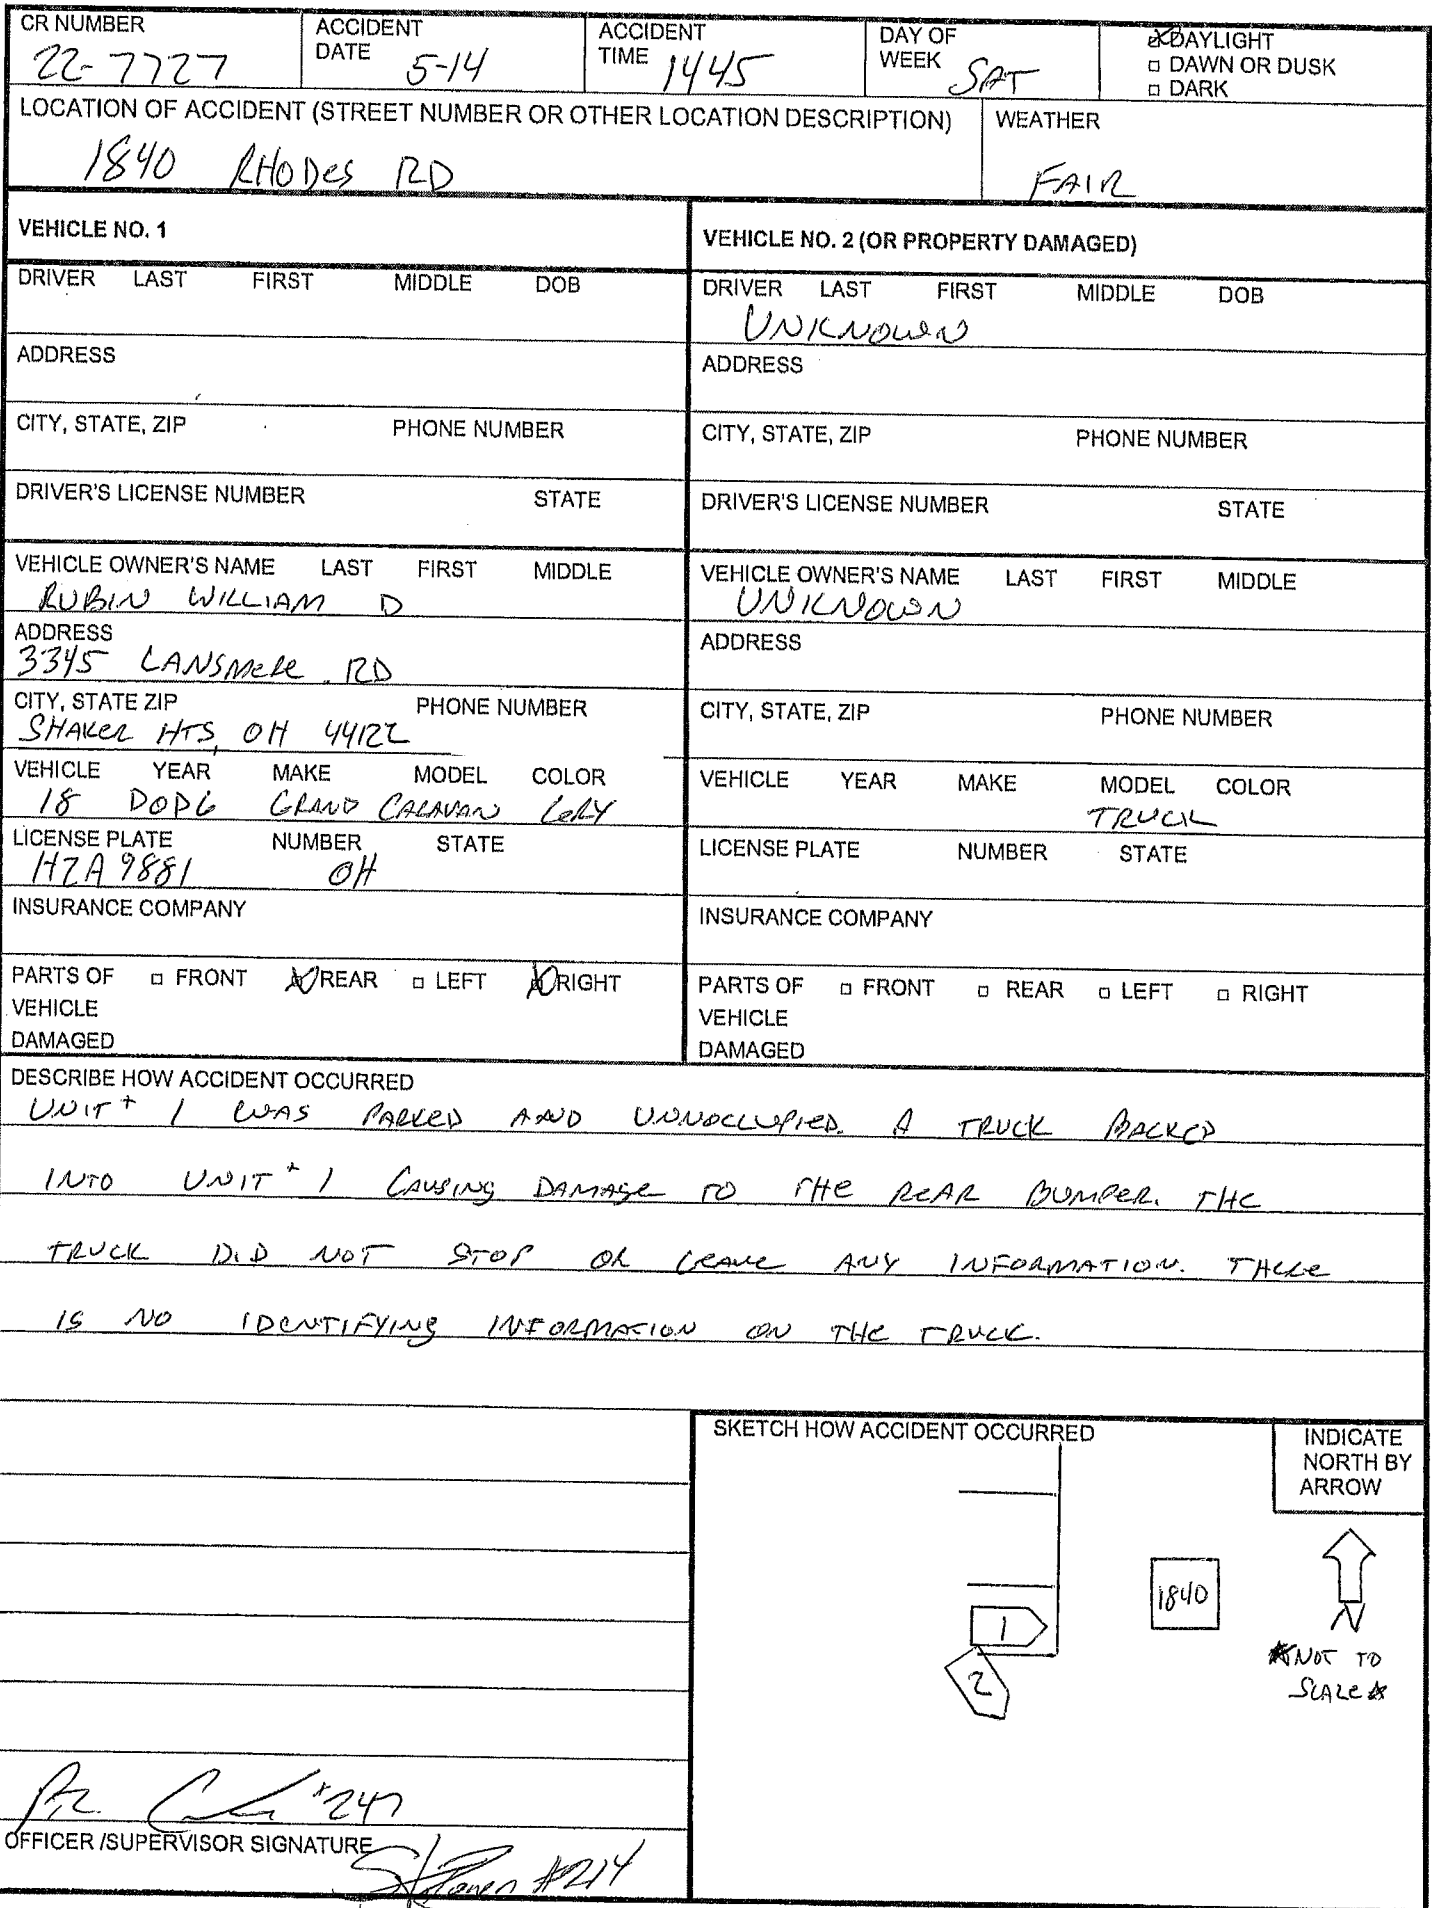 CR NUMBER
22-7727
ACCIDENT
DATE 5-14
ACCIDENT
TIME 1445
DAY OF
WEEK SAT
DAYLIGHT
DAWN OR DUSK
DARK
LOCATION OF ACCIDENT (STREET NUMBER OR OTHER LOCATION DESCRIPTION)
1840 RHODES RD
WEATHER
FAIR
VEHICLE NO. 1
DRIVER LAST FIRST MIDDLE DOB
ADDRESS
CITY, STATE, ZIP PHONE NUMBER
DRIVER'S LICENSE NUMBER STATE
VEHICLE OWNER'S NAME LAST FIRST MIDDLE
RUBIN WILLIAM D
ADDRESS
3345 LANSMERE RD
CITY, STATE ZIP PHONE NUMBER
SHAKER HTS, OH 44122
VEHICLE YEAR MAKE MODEL COLOR
18 DODG GRAND CARAVAN GRY
LICENSE PLATE NUMBER STATE
HZA 9881 OH
INSURANCE COMPANY
PARTS OF FRONT REAR LEFT RIGHT
VEHICLE
DAMAGED
VEHICLE NO. 2 (OR PROPERTY DAMAGED)
DRIVER LAST FIRST MIDDLE DOB
UNKNOWN
ADDRESS
CITY, STATE, ZIP PHONE NUMBER
DRIVER'S LICENSE NUMBER STATE
VEHICLE OWNER'S NAME LAST FIRST MIDDLE
UNKNOWN
ADDRESS
CITY, STATE, ZIP PHONE NUMBER
VEHICLE YEAR MAKE MODEL COLOR
TRUCK
LICENSE PLATE NUMBER STATE
INSURANCE COMPANY
PARTS OF FRONT REAR LEFT RIGHT
VEHICLE
DAMAGED
DESCRIBE HOW ACCIDENT OCCURRED
UNIT # 1 WAS PARKED AND UNNOCCUPIED. A TRUCK BACKED
INTO UNIT # 1 CAUSING DAMAGE TO THE REAR BUMPER. THE
TRUCK DID NOT STOP OR LEAVE ANY INFORMATION. THERE
IS NO IDENTIFYING INFORMATION ON THE TRUCK.
SKETCH HOW ACCIDENT OCCURRED
INDICATE
NORTH BY
ARROW
1840
1
2
N
*NOT TO
SCALE*
Ptl. #247
OFFICER /SUPERVISOR SIGNATURE
#214